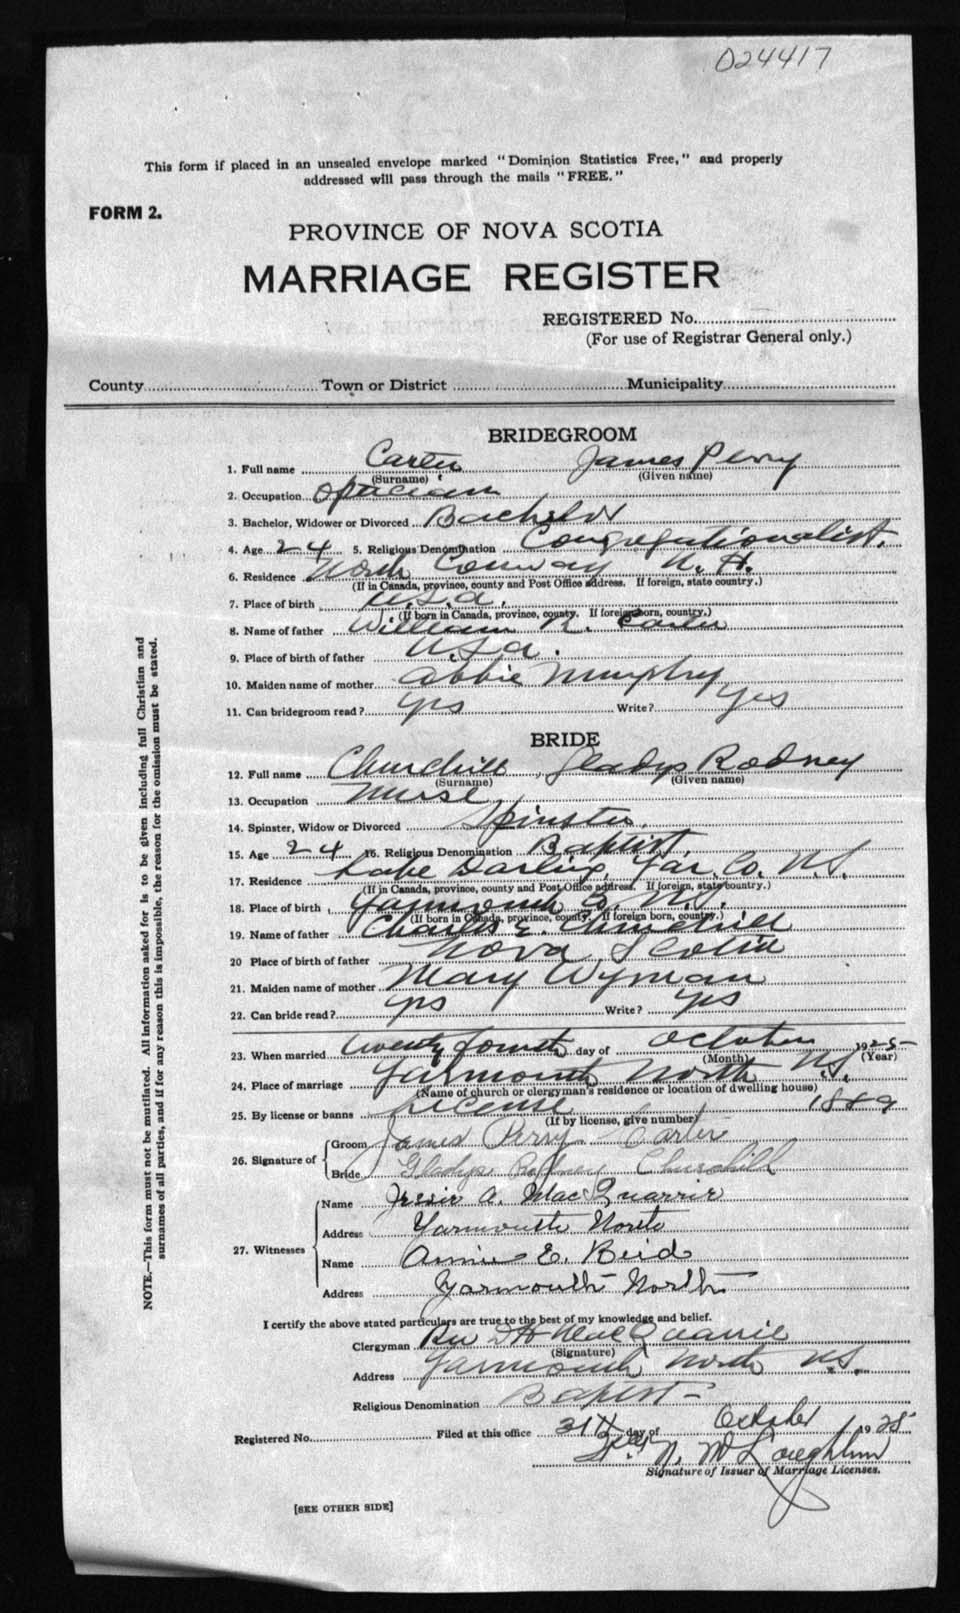 024417
This form if placed in an unsealed envelope marked "Dominion Statistics Free," and properly
addressed will pass through the mails "FREE."
FORM 2.
PROVINCE OF NOVA SCOTIA
MARRIAGE REGISTER
REGISTERED No.
(For use of Registrar General only.)
County Town or District Municipality
BRIDEGROOM
1. Full name Carter James Perry
(Surname) (Given name)
2. Occupation Optician
3. Bachelor, Widower or Divorced Bachelor
4. Age 24 5. Religious Denomination Congregationalist.
6. Residence North Conway N. H.
(If in Canada, province, county and Post Office address. If foreign, state country.)
7. Place of birth U.S.A.
(If born in Canada, province, county. If foreign born, country.)
8. Name of father William Carter
9. Place of birth of father U.S.A.
10. Maiden name of mother Abbie Murphy
11. Can bridegroom read? Yes Write? Yes
BRIDE
12. Full name Churchill, Gladys Rodney
(Surname) (Given name)
13. Occupation Nurse
14. Spinster, Widow or Divorced Spinster.
15. Age 24 16. Religious Denomination Baptist
17. Residence Lake Darling, Yar. Co. N.S.
(If in Canada, province, county and Post Office address. If foreign, state country.)
18. Place of birth Yarmouth Co. N.S.
(If born in Canada, province, county. If foreign born, country.)
19. Name of father Charles E. Churchill
20 Place of birth of father Nova Scotia
21. Maiden name of mother Mary Wyman
22. Can bride read? Yes Write? Yes
23. When married twenty fourth day of October 1925
(Month) (Year)
24. Place of marriage Yarmouth North N.S.
(Name of church or clergyman's residence or location of dwelling house)
25. By license or banns License 1889
(If by license, give number)
26. Signature of Groom James Perry Carter
Bride Gladys Rodney Churchill
27. Witnesses Name Jessie A. MacQuarrie
Address Yarmouth North
Name Annie E. Reid
Address Yarmouth North
I certify the above stated particulars are true to the best of my knowledge and belief.
Clergyman Rev D H MacQuarrie
(Signature)
Address Yarmouth North N.S.
Religious Denomination Baptist
Registered No. Filed at this office 31st day of October 1925
N. McLoughlin
Signature of Issuer of Marriage Licenses.
[SEE OTHER SIDE]
NOTE.—This form must not be mutilated. All information asked for is to be given including full Christian and
surnames of all parties, and if for any reason this is impossible, the reason for the omission must be stated.